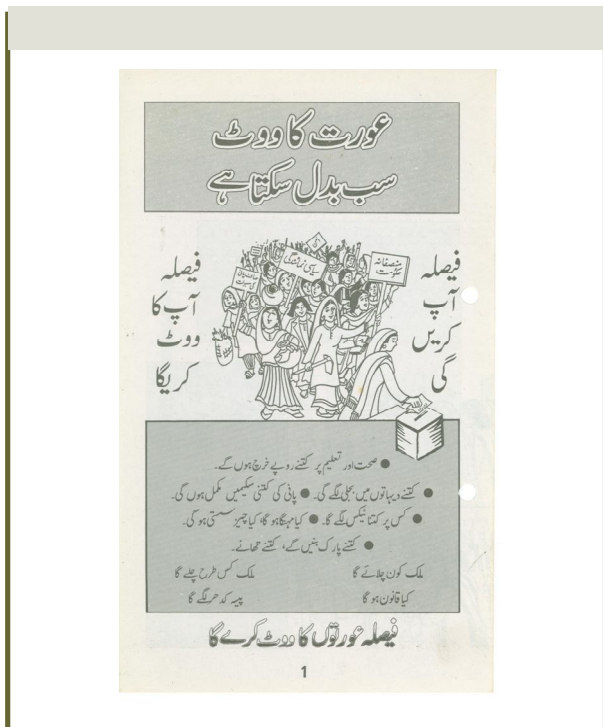 عورت کا ووٹ
سب بدل سکتا ہے
فیصلہ
آپ
کریں
گی
منصفانہ
حکومت
سیاسی نمائندگی
فیصلہ
آپ کا
ووٹ
کریگا
● صحت اور تعلیم پر کتنے روپے خرچ ہوں گے۔
● کتنے دیہاتوں میں بجلی لگے گی۔ ● پانی کی کتنی سکیمیں مکمل ہوں گی۔
● کس پر کتنا ٹیکس لگے گا۔ ● کیا مہنگا ہو گا، کیا چیز سستی ہو گی۔
● کتنے پارک بنیں گے، کتنے تھانے۔
ملک کون چلائے گا ملک کس طرح چلے گا
کیا قانون ہو گا پیسہ کدھر لگے گا
فیصلہ عورتوں کا ووٹ کرے گا
1